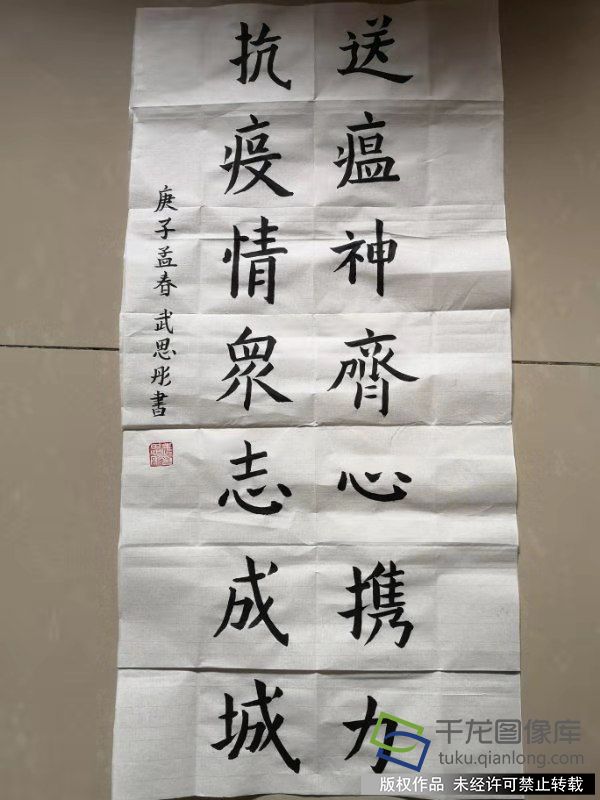 送瘟神齊心携力
抗疫情眾志成城
庚子孟春武思彤書
千龙图像库
tuku.qianlong.com
版权作品 未经许可禁止转载